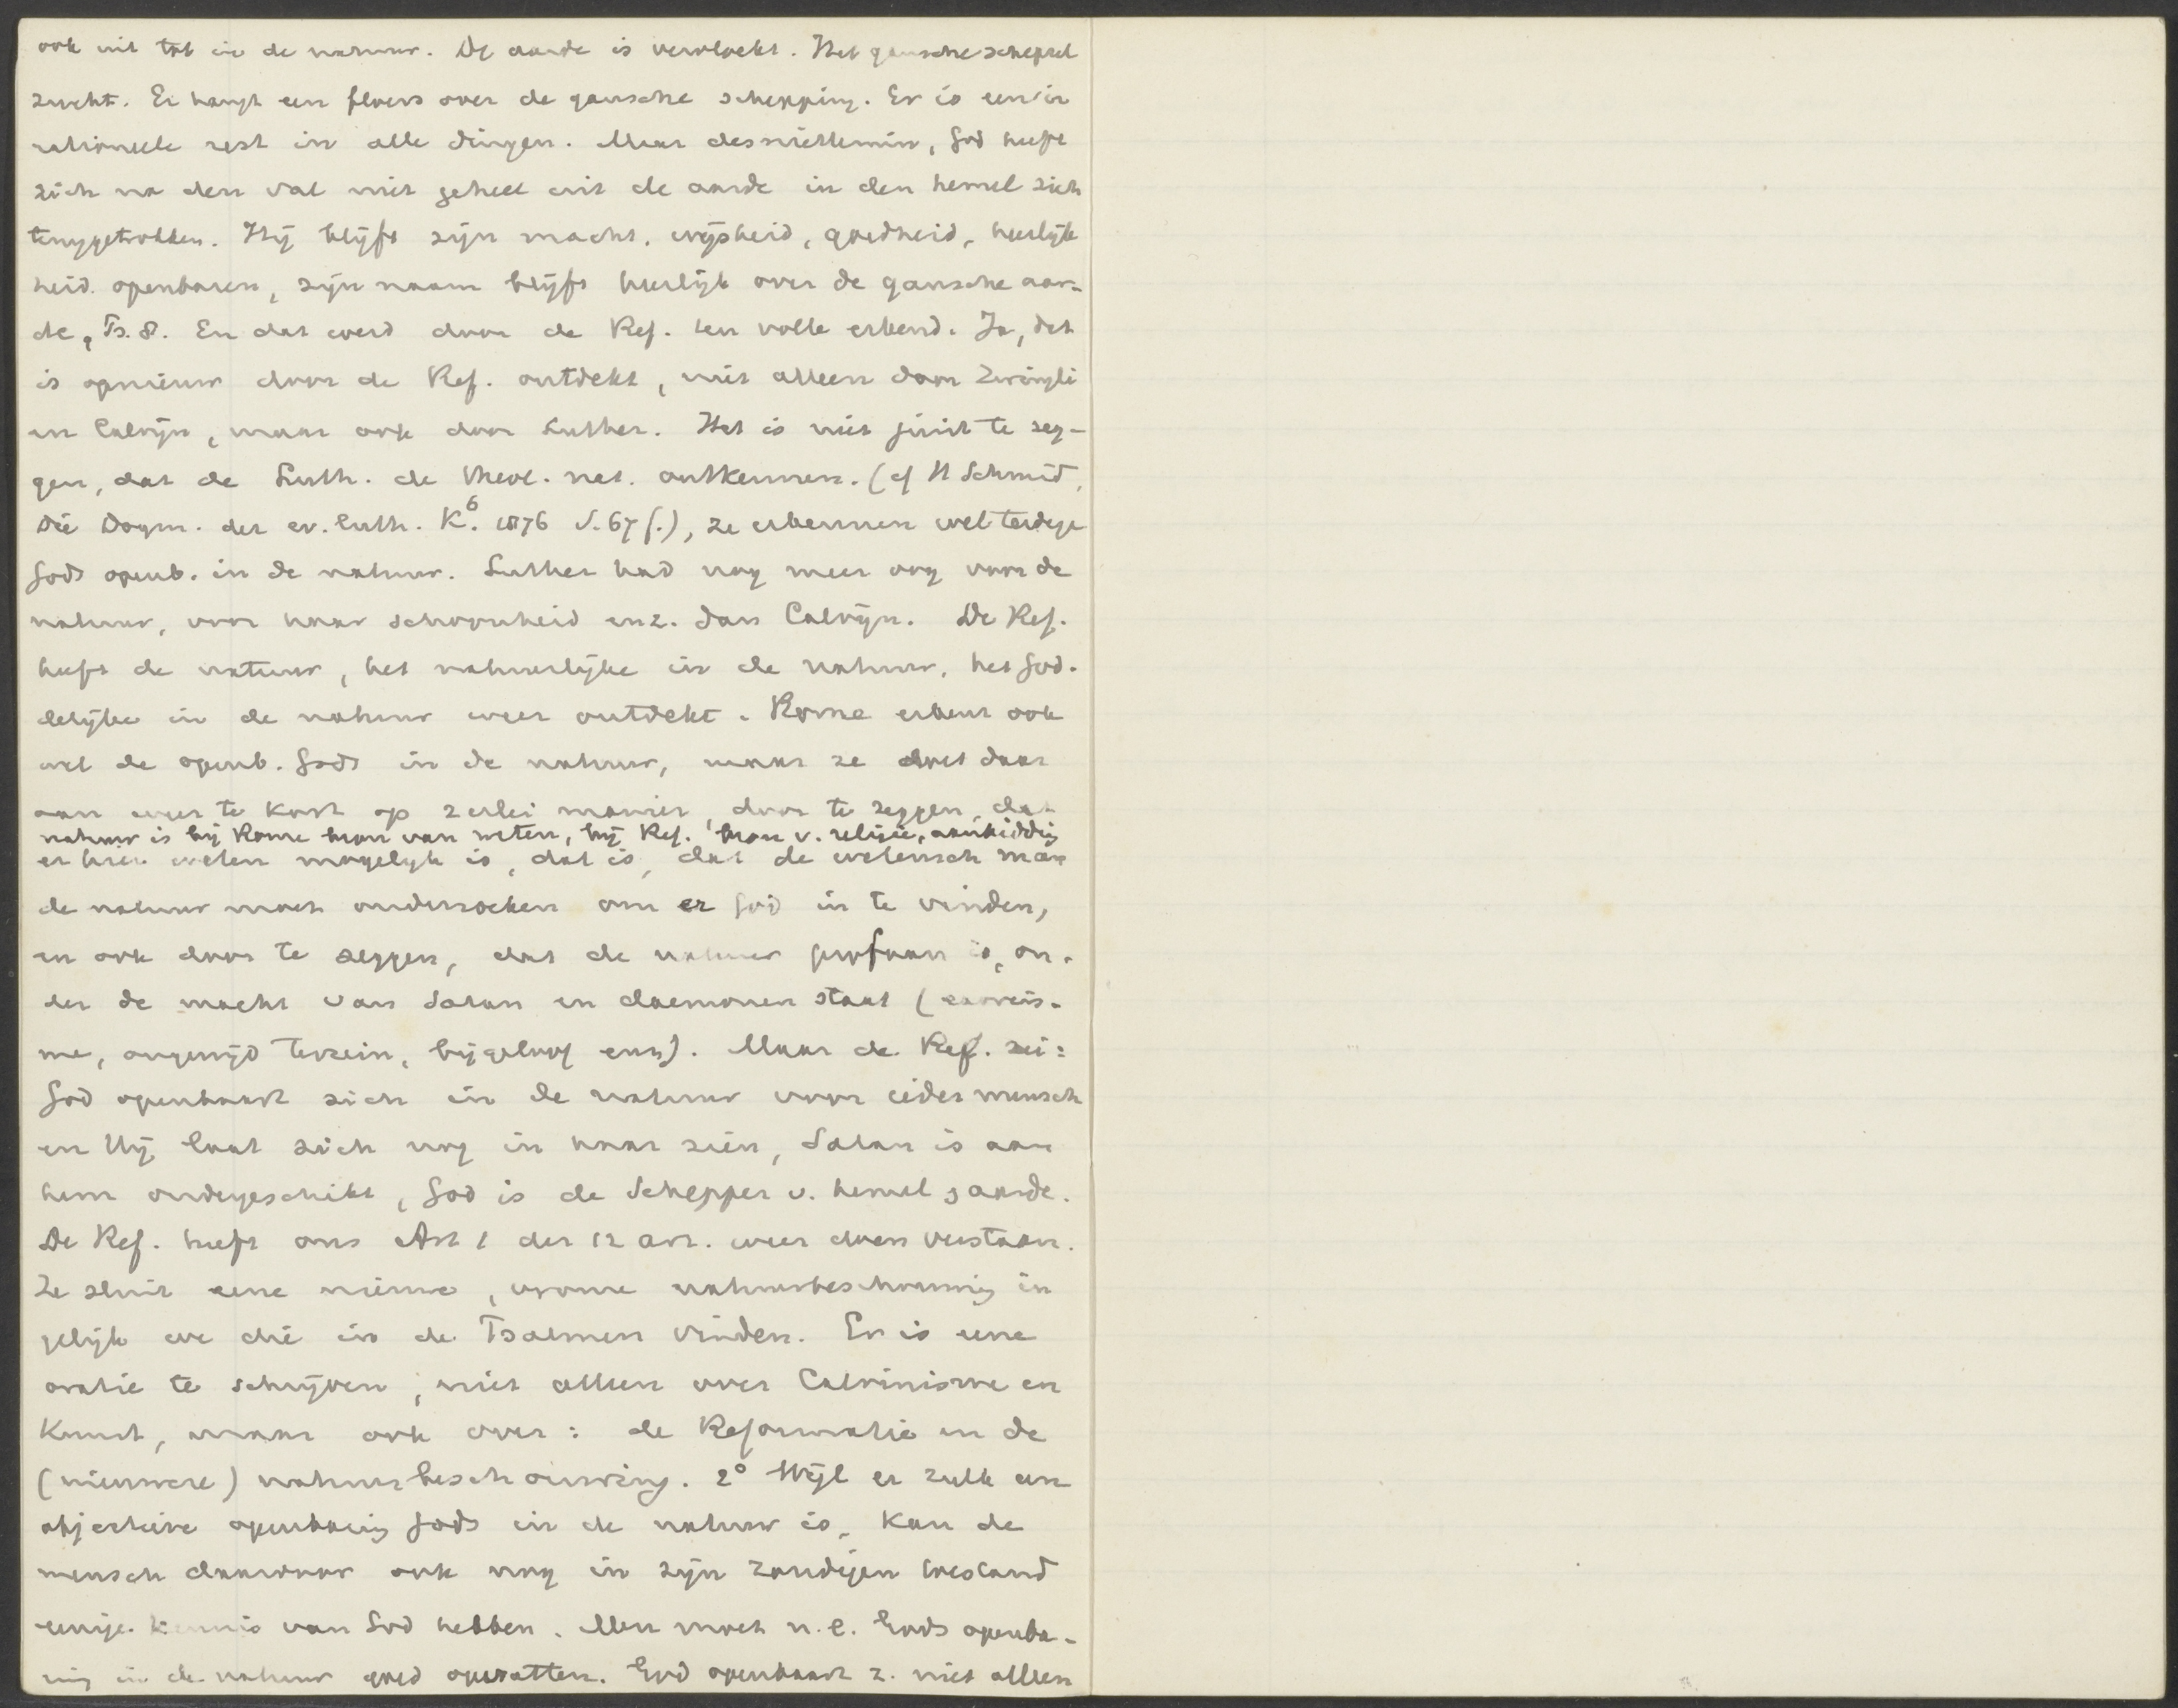 ook uit tot in de natuur. De aarde is vervloekt. Het gansche schepsel
zucht. Er hangt een floers over de gansche schepping. Er is een ir
rationeele rest in alle dingen. Maar desniettemin, God heeft
zich na den val niet geheel uit de aarde in den hemel zich
teruggetrokken. Hij blijft zijn macht, wijsheid, goedheid, heerlijk
heid openbaren, zijn naam blijft heerlijk over de gansche aar-
de, Ps. 8. En dat werd door de Ref. ten volle erkend. Ja, dat
is opnieuw door de Ref. ontdekt, niet alleen door Zwingli
en Calvijn, maar ook door Luther. Het is niet juist te zeg-
gen, dat de Luth. de theol. nat. ontkennen. (cf H Schmid,
Die Dogm. der ev. luth. K.⁶ 1876 S. 67 f.), ze erkennen wel terdege
Gods openb. in de natuur. Luther had nog meer oog voor de
natuur, voor haar schoonheid enz. dan Calvijn. De Ref.
heeft de natuur, het natuurlijke in de natuur, het God-
delijke in de natuur weer ontdekt. Rome erkent ook
wel de openb. Gods in de natuur, maar ze doet daar
aan weer te kort op 2erlei manier, door te zeggen, dat
natuur is bij Rome bron van weten, bij Ref. bron v. religie, aanbidding
er hier weten mogelijk is, dat is, dat de wetensch man
de natuur moet onderzoeken om er God in te vinden,
en ook door te zeggen, dat de natuur profaan is, on-
der de macht van Satan en daemonen staat (exorcis-
me, ongewijd terrein, bijgeloof enz). Maar de Ref. zei:
God openbaart zich in de natuur voor ieder mensch
en Hij laat zich nog in haar zien, Satan is aan
hem ondergeschikt, God is de Schepper v. hemel & aarde.
De Ref. heeft ons Art 1 der 12 art. weer doen verstaan.
Ze sluit eene nieuwe, vrome natuurbeschouwing in
gelijk we die in de Psalmen vinden. Er is eene
oratie te schrijven, niet alleen over Calvinisme en
Kunst, maar ook over: de Reformatie en de
(nieuwere) natuurbeschouwing. 2° Wijl er zulk een
objectieve openbaring Gods in de natuur is, kan de
mensch daardoor ook nog in zijn zondigen toestand
eenige kennis van God hebben. Men moet n.l. Gods openba-
ring in de natuur goed opvatten. God openbaart z. niet alleen